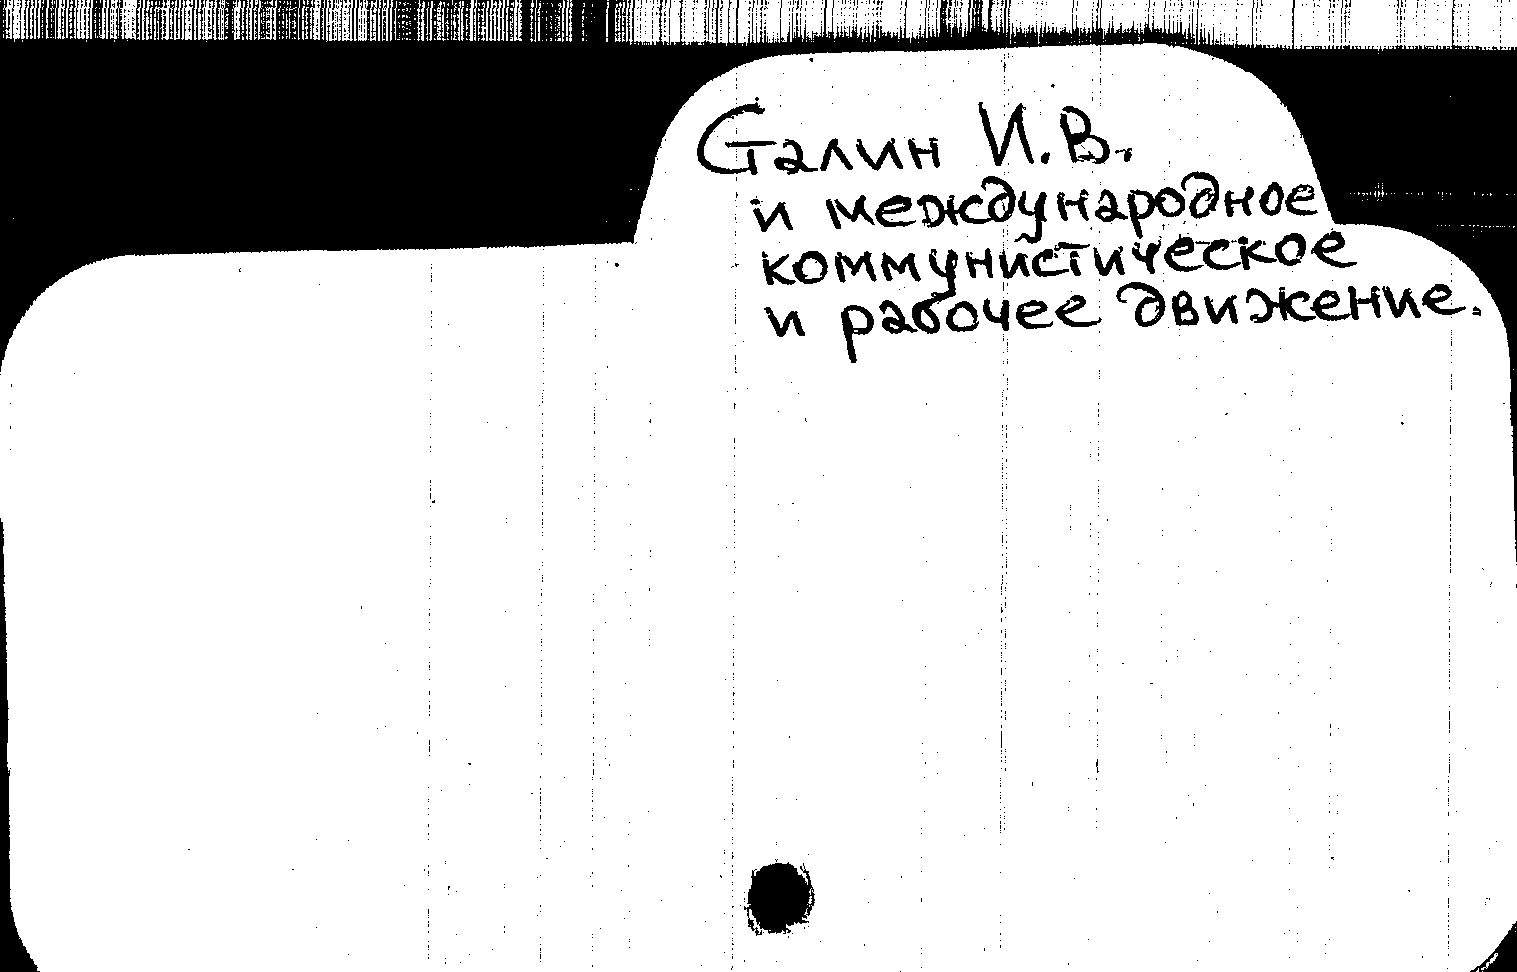 Сталин И.В.
и международное
коммунистическое
и рабочее движение.